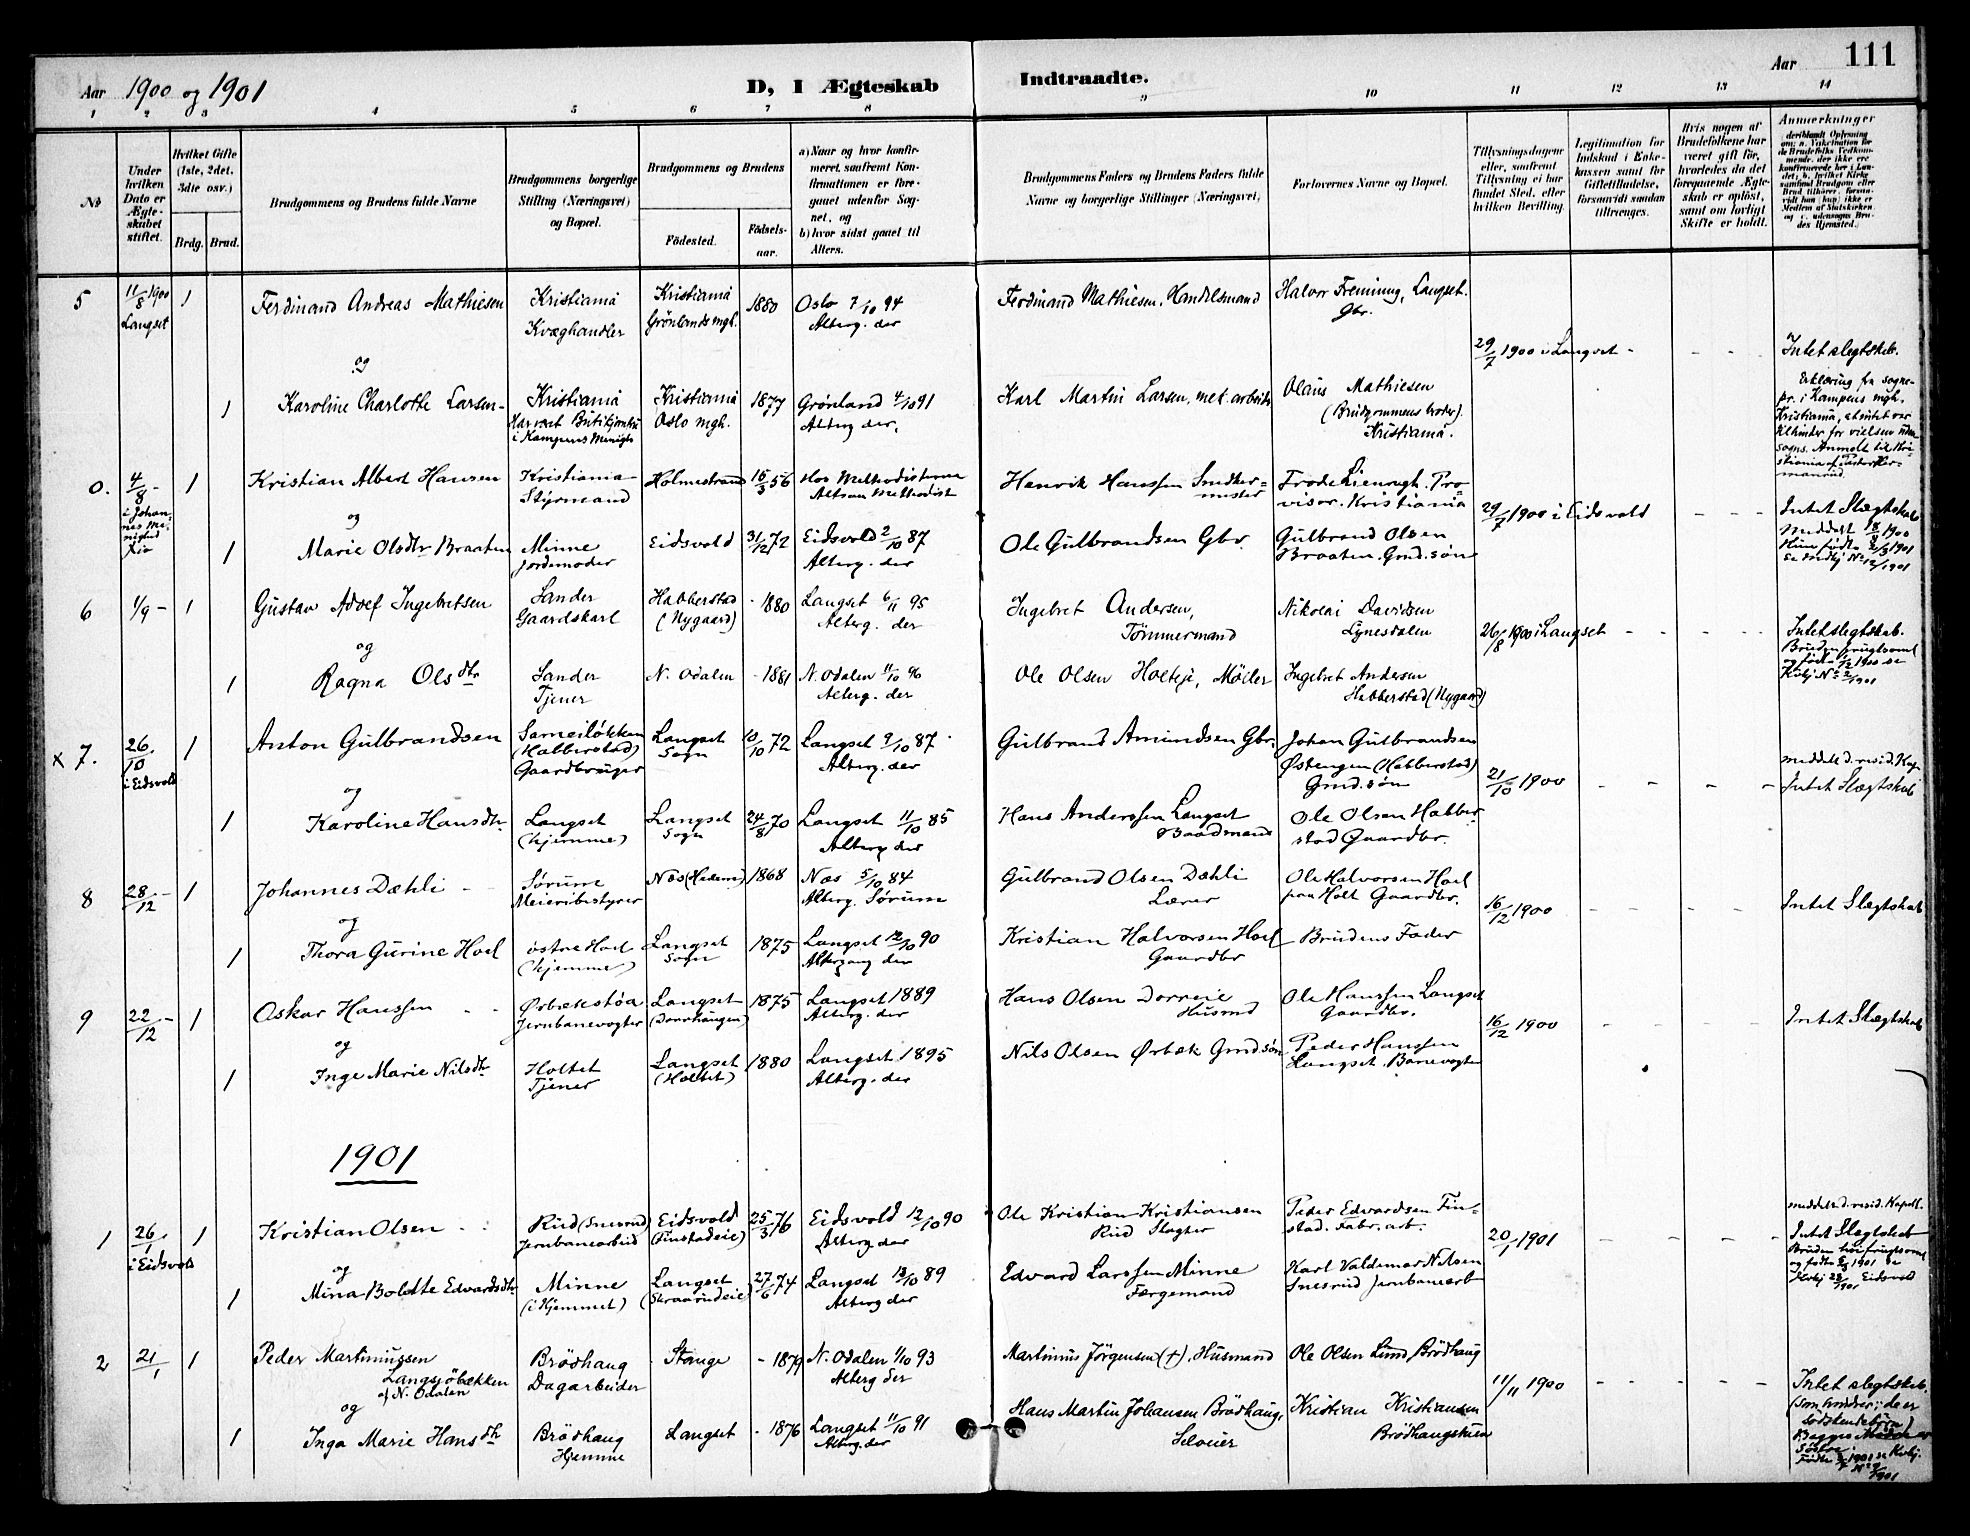 Aar 1900 og 1901
D, I Ægteskab Indtraadte.
Aar 111
1 2 3 4 5 6 7 8 9 10 11 12 13 14
No
Under hvilken Dato er Ægteskabet stiftet.
Hvilket Gifte (1ste, 2det, 3die osv.)
Brdg. Brud.
Brudgommens og Brudens fulde Navne
Brudgommens borgerlige Stilling (Næringsvei) og Bopæl.
Brudgommens og Brudens
Fødested.
Fødselsaar.
a) Naar og hvor konfirmeret, saafremt Konfirmationen er foregaaet udenfor Sognet, og
b) hvor sidst gaaet til Alters.
Brudgommens Faders og Brudens Faders fulde Navne og borgerlige Stillinger (Næringsvei)
Forlovernes Navne og Bopæl.
Tillysningsdagene eller, saafremt Tillysning ei har fundet Sted, efter hvilken Bevilling.
Legitimation for Indskud i Enkekassen samt for Giftetilladelse, forsaavidt saadan tiltrænges.
Hvis nogen af Brudefolkene har været gift før, hvorledes da det foregaaende Ægteskab er opløst, samt om lovligt Skifte er holdt.
Anmerkninger
5 11/8 1900 Langset 1 Ferdinand Andreas Mathiesen Kristiania Kvæghandler Kristiania Grönlands mgh. 1880 Oslo 7/10 94 Alterg. der Ferdinand Mathiesen, Handelsmand Halvor Fremming, Langset. Gbr.
og
29/7 1900 i Langset - - - Intet slegtskab.
1 Karoline Charlotte Larsen Kristiania i Kampens Menigh Kristiania Oslo mgh. 1877 Grønland 4/10 91 Alterg der. Karl Martin Larsen, met. arbeider Olaus Mathiesen (Brudgommens broder). Kristiania.
Erklæring fra sogne-
pr. i Kampens mgh.
Kristiania, at intet var
til hinder for vielsen
0. 4/8 - i Johannes Menighed Kr.a 1 Kristian Albert Hansen Kristiania Styrmand Holmestrand 15/3 56 Hos Methodisterne Altsaa Methodist Henrik Hanssen Snedkermester Frode Lienough. Provisor. Kristiania
og
29/7 1900 i Eidsvold - - - Intet Slægtskab
1 Marie Olsdtr Braaten Minne Jordemoder Eidsvold 31/12 72 Eidsvold 2/10 87 Alterg. der Ole Gulbrandsen Gbr. Gulbrand Olsen Braaten. Gmd.søn
Meddelt 18/8 1900
6 1/9 - 1 Gustav Adolf Ingebretsen Sander Gaardskarl Habberstad (Nygaard) - 1880 Langset 6/11 95 Alterg. der Ingebret Andersen, Tömmermand Nikolai Davidsen Lynesdalen
og
26/8 1900 i Langset - - - - Intet slegtskab.
1 Ragna Olsdtr Sander Tjener N. Odalen - 1881 N. Odalen 11/10 96 Alterg. der Ole Olsen Holteje, Møller Ingebret Andersen Habberstad (Nygaard)
x 7. 26/10 i Eidsvold 1 Anton Gulbrandsen (Habberstad) Gaardbruger Langset Sogn 10/10 72 Langset 9/10 87 Alterg. der Gulbrand Amundsen Gbr. Johan Gulbrandsen Østengen (Habberstad) Gmd.søn
og
21/10 1900 - - - - meddelt d. resid. Kap Intet Slægtskab
1 Karoline Hansdtr. Langset (hjemme) Langset Sogn 24/8 70 Langset 11/10 85 Alterg der Hans Anderssen Langset Baadmand Ole Olsen Habberstad Gaardbr.
8 28/12 - 1 Johannes Dæhli - - Sørum Meieribestyrer Næs (Hedem.) 1868 Næs 5/10 84 Alterg. Sørum Gulbrand Olsen Dæhli Lærer Ole Halvorsen Hoel paa Holt Gaardbr.
og
16/12 1900 - - - - Intet Slægtskab
1 Thora Gurine Hoel østre Hoel (hjemme) Langset Sogn 1875 Langset 12/10 90 Altergang der Kristian Halvorsen Hoel Gaardbr Brudens Fader
9 22/12 - 1 Oskar Hanssen - - Ørbækstøa Jernbanevogter Langset (Dorrhaugen) 1875 Langset 1889 Alterg. der Hans Olsen Dorreie Husmd Ole Hanssen Langset Gaardbr.
og
16/12 1900 - - - - Intet Slægtskab
1 Inge Marie Nilsdtr Holtet Tjener Langset (Holtet) 1880 Langset 1895 Alterg. der Nils Olsen Ørbæk Gmdsøn Peder Hanssen Langset. Banevogter
1901
1 26/1 i Eidsvold 1 Kristian Olsen - - Rud (Snesrud) Jernbanearbeid Eidsvold (Finstadeie) 25/3 76 Eidsvold 12/10 90 Alterg der Ole Kristian Kristiansen Rud Slagter Peder Edvardsen Finstad. Fabr. arb.
og
20/1 1901 - - - - meddelt d. resid. Kapell. Intet Slægtskab
1 Mina Boldte Edvardsdtr Minne (i Hjemmet) Langset (Skraarudeie) 27/6 74 Langset 13/10 89 Alterg der Edvard Larssen Minne Færgemand Karl Valdemar Nilsen Snesrud Jernbanearb
2 21/1 1 Peder Martinussen Langsjöbækken af N. Odalen Brödhaug Dagarbeider Stange - 1879 N. Odalen 1/10 93 Alterg der Martinus Jörgensen (+), Husmand Ole Olsen Lund, Brödhaug
og
11/11 1900 - - - - Intet slegtskab.
1 Inga Marie Hansdtr Brödhaug Hjemme Langset - 1876 Langset 11/10 91 Alterg. der Hans Martin Johansen Brödhaug, Selveier Kristian Kristiansen Brödhaugstuen